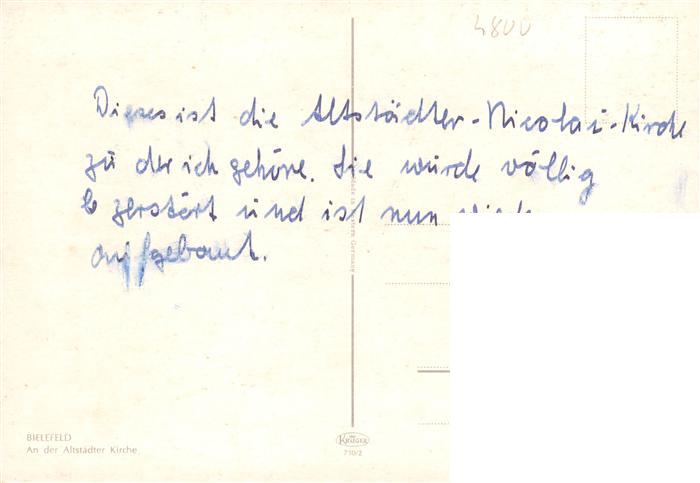 4800
Dieses ist die Altstädter-Nicolai-Kirche
zu der ich gehöre. Sie wurde völlig
zerstört und ist nun
aufgebaut.
BIELEFELD
An der Altstädter Kirche
KRÜGER
710/2